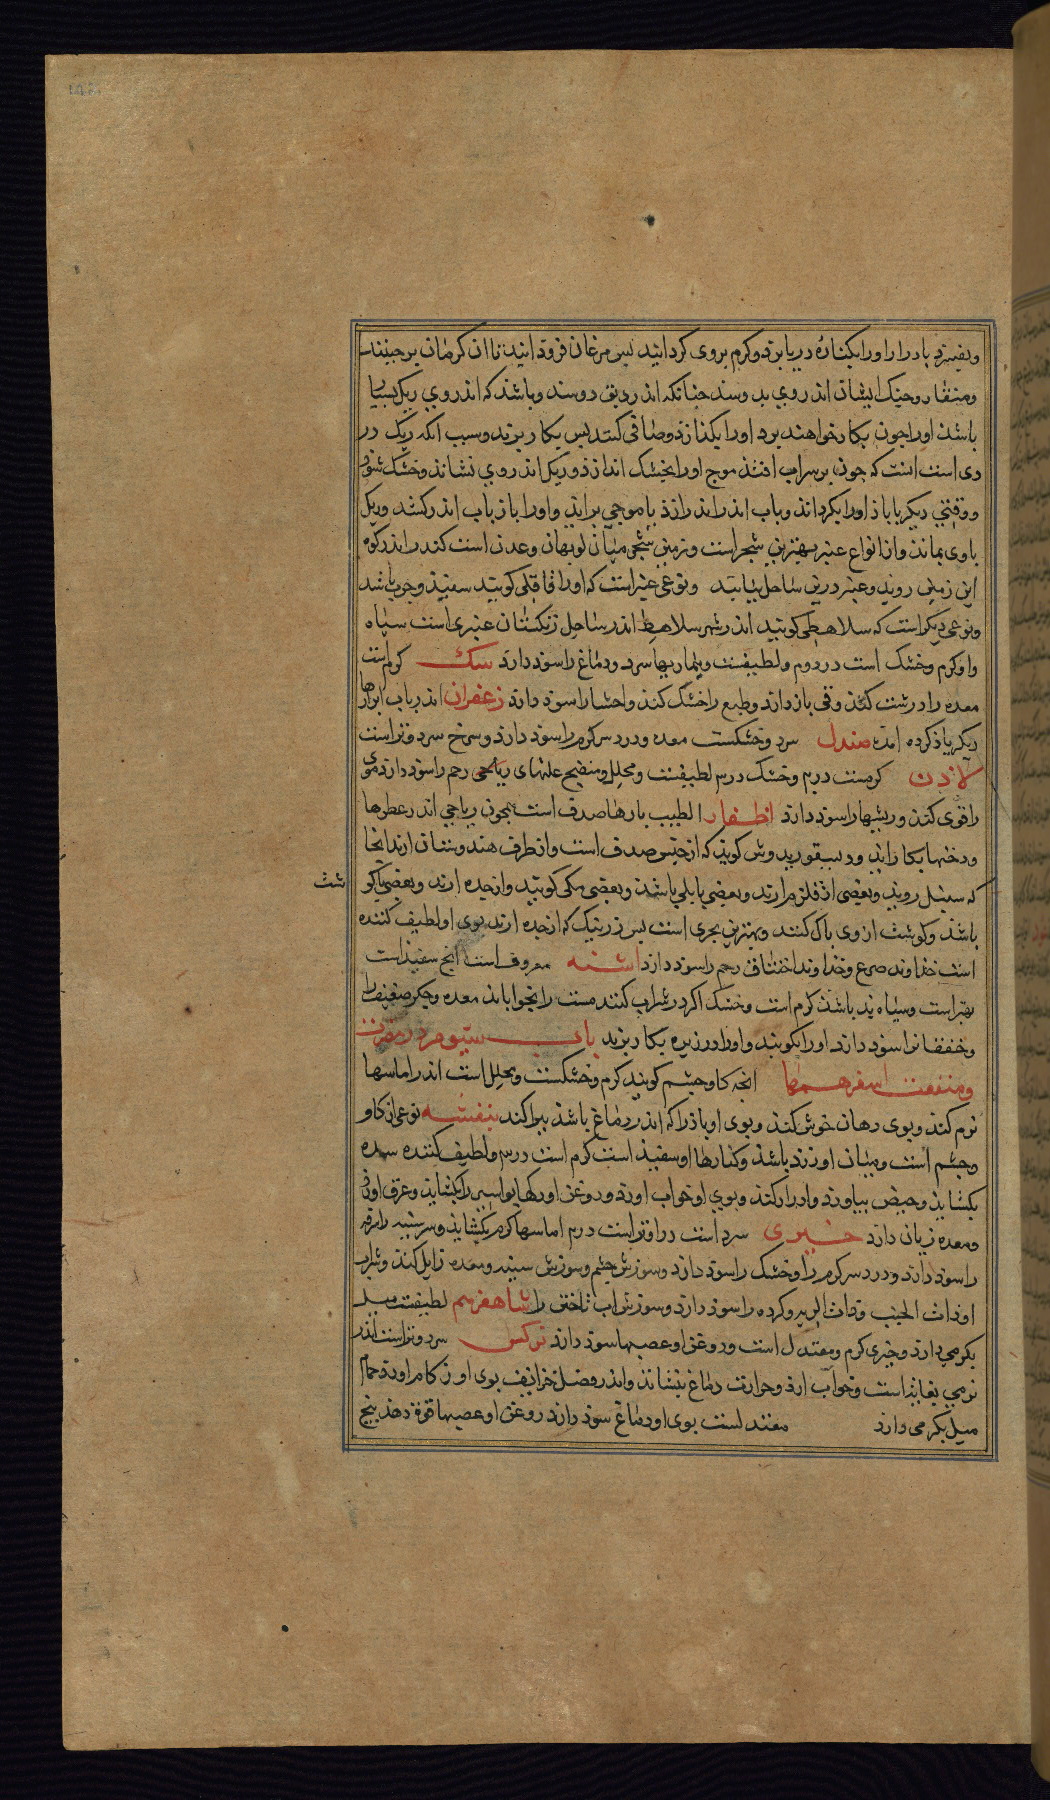 و بیفسرد باد را او را بکناره دریا برد و کرم بروی کرد ایند پس مرغان فرود ایند تا ان کرمان برچینند
و منقار و چنک ایشان اندر وی بدوسد چنانکه اندر دبق دوسد و باشد که اندر وی ریک بسیار
باشد او را چون بکار خواهند برد او را بکدازند و صافی کنند پس بکار برند و سبب انکه ریک در
وی است انست که چون بر سر اب افتد موج او را بخشک اندازد و ریک اندر وی نشاند و خشک شود
و وقتی دیکر باباز او را بکرداند و باب اندر اندازد با موجی براید و او را باز باب اندر کشد و ریک
با وی بماند و از انواع عنبر بهترین شحر است و زمین شحر میان لوبهان و عدن است کندر اندر کوه
این زمین روید و عنبر درین ساحل بیابند و نوعی عنبر است که او را قاقلی کویند سفید و چرب باشد
و نوعی دیکر است که سلاهطی کویند اندر شهر سلاهط اندر ساحل زنکستان عنبری است سیاه
و او کرم و خشک است در دوم و لطیفست و بیماریهاء سرد و دماغ را سود دارد سک کرم است
معده را درشت کند و قی باز دارد و طبع را خشک کند و احشا را سود دارد زعفران اندر باب ابزارها
دیکر یاذ کرده امد صندل سرد و خشکست معده و درد سر کرم را سود دارد و سرخ سردتر است
لاذن کرمست در دوم و خشک در سم لطیفست و محلل و منضج علتهای ریاحی رحم را سود دارد و موی
را قوی کند و ریشها را سود دارد اظفار الطیب پارها صدف است همچون ریاحی اندر عطرها
و دخنها بکار اید و دیسقوریدوش کوید که از جنس صدف است و از طرف هندوستان ارند انجا
که سنبل روید و بعضی از قلزم ارند و بعضی بابلی باشد و بعضی مکی کویند و از جده ارند و بعضی باکو
شت
باشد و کوشت از وی پاک کنند و بهترین بحری است پس زریک که از جده ارند بوی او لطیف کننده
است خداوند صرع و خداوند اختناق رحم را سود دارد اشنه معروف است انچ سفید است
بهتر است و سیاه بد باشد کرم است و خشک اکر در شراب کنند مست را بخواباند معده و جکر ضعیف را
و خفقانرا سود دارد او را بکوبند و اندر زیره بکار برند باب سیوم در معرفت
و منفعت اسفرهمها انجه کاوچشم کویند کرم و خشکست و محلل است اندر اماسها
نرم کند و بوی دهان خوش کند و بوی او باد را که اندر دماغ باشد ببراکند بنفشه نوعی از کاو
چشم است و میان او زرد باشد و کنارها او سفید است کرم است در سم و لطیف کننده سده
بکشاید و حیض بیاورد و ادرار کند و بوی او خواب اورد و روغن او رکهای بواسیر را بکشاید و عرق اورد
و معده زیان دارد خیری سرد است در اول تر است در سم اماسها کرم بکشاید و سرسینه را نرم
را سود دارد و درد سر کرم را و خشک را سود دارد و سوزش چشم و سوزش سینه و معده زایل کند و شراب
او ذات الجنب و ذات الریه و کرده را سود دارد و سوزش اب تاختن را شاهفرهم لطیفست میل
بکرمی دارد و خیری کرم و معتدل است و روغن او عصبها سود دارد نرکس سرد و تر است اندر
نرمی بغایت است و خواب ارد و حرارت دماغ بنشاند و اندر فصل خرایف بوی او زکام اورد حمام
میل بکرمی دارد معتدلست بوی او دماغ سود دارد روغن او عصبها قوة دهد بیخ